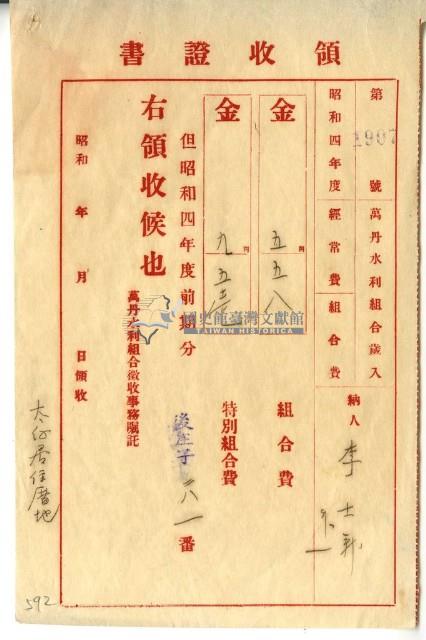 領收證書
第 1907 號 萬丹水利組合歲入
昭和四年度 經常費 組合費
納人 李士
金 圓 五五八 組合費
金 圓 九五 特別組合費
但昭和四年度前期分
後庄子 六一番
右領收候也
萬丹水利組合徵收事務囑託
昭和 年 月 日領收
國史館臺灣文獻館
TAIWAN HISTORICA
592